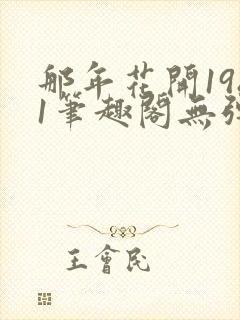 那年花開19
1筆趣閣無
王會民